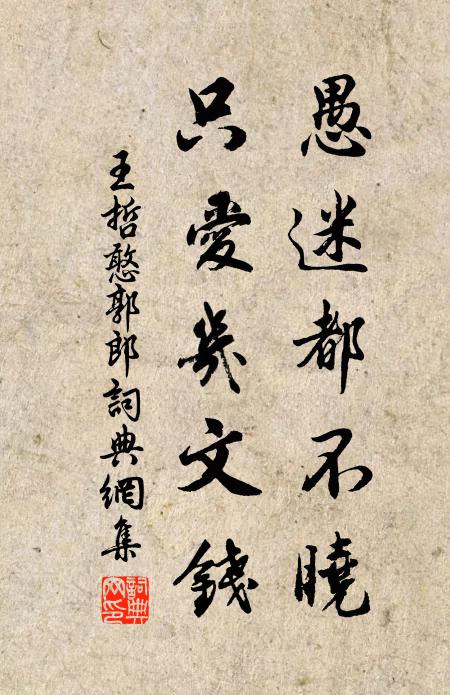 愚迷都不曉
只愛幾文錢
王哲憨郭郎詞典網集
詞典網印